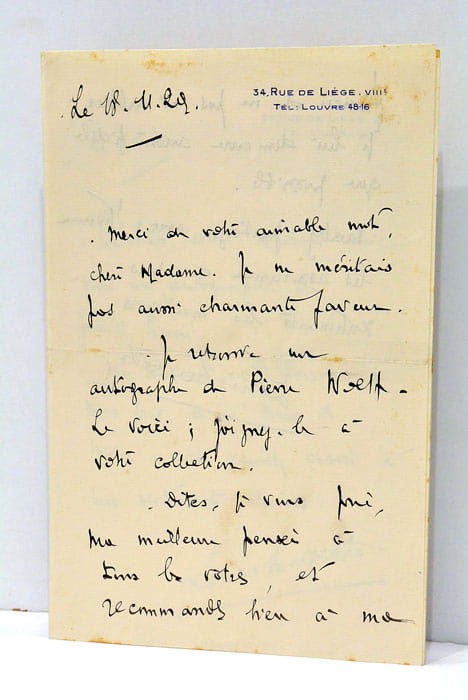 34, RUE DE LIÉGE. VIIIᵉ
TÉL: LOUVRE 48-16
Le 18. 11. 29.
. Merci de votre aimable mot,
chère Madame. Je ne méritais
pas aussi charmante faveur.
. Je retrouve un
autographe de Pierre Wolff.
Le voici ; joignez-le à
votre collection.
. Dites, je vous prie,
ma meilleure pensée à
tous les votres, et
recommandez bien à ma